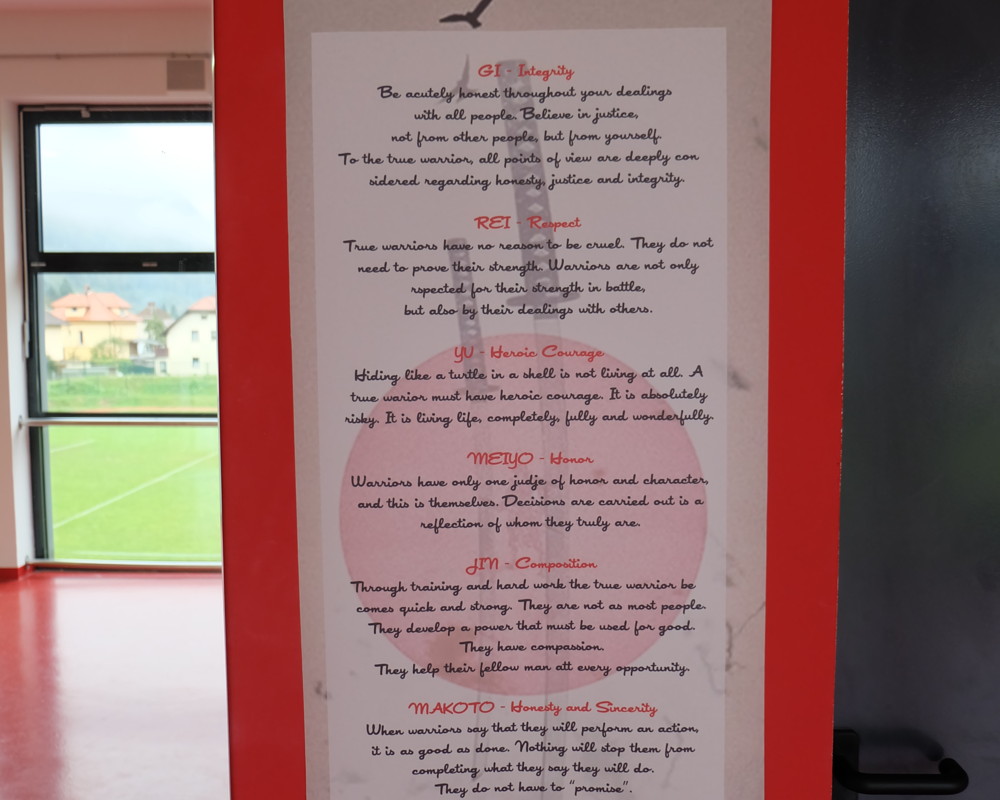 GI - Integrity
Be acutely honest throughout your dealings
with all people. Believe in justice,
not from other people, but from yourself.
To the true warrior, all points of view are deeply con
sidered regarding honesty, justice and integrity.
REI - Respect
True warriors have no reason to be cruel. They do not
need to prove their strength. Warriors are not only
rspected for their strength in battle,
but also by their dealings with others.
YU - Heroic Courage
Hiding like a turtle in a shell is not living at all. A
true warior must have heroic courage. It is absolutely
risky. It is living life, completely, fully and wonderfully.
MEIYO - Honor
Warriors have only one judje of honor and character,
and this is themselves. Decisions are carried out is a
reflection of whom they truly are.
JIN - Composition
Through training and hard work the true warrior be
comes quick and strong. They are not as most people.
They develop a power that must be used for good.
They have compassion.
They help their fellow man att every opportunity.
MAKOTO - Honesty and Sincerity
When warriors say that they will perform an action,
it is as good as done. Nothing will stop them from
completing what they say they will do.
They do not have to "promise".